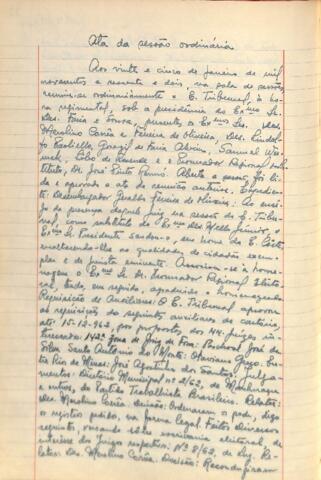 Ata da sessão ordinária
Aos vinte e cinco de janeiro de mil
novecentos e sessenta e dois, na sala de sessões,
reuniu-se ordinariamente o E. Tribunal, à ho-
ra regimental, sob a presidência do Exmo Sr.
Des. Faria e Sousa, presentes os Exmos Srs. Des.
Marcolino Corrêa e Ferreira de Oliveira, Drs.
de Faria Alvim, Samuel
Lobo de Resende e o Procurador Regional subs-
tituto, Dr. José Pinto Renno. Aberta a sessão, foi li-
da e aprovada a ata da reunião anterior. Expedien-
te: Desembargador Geraldo Ferreira de Oliveira: Ao ensê-
jo da presença daquele Juiz na sessão do E. Tribu-
nal, como substituto do Exmo Des. Mello Júnior, o
Exmo Sr. Presidente saudou-o em nome da E. Côrte,
enaltecendo-lhe as qualidades de cidadão exem-
plar e de jurista eminente. Associou-se à home-
nagem o Exmo Sr. Dr. Procurador Regional Eleito-
ral, tendo, em seguida, agradecido o homenageado.
Requisição de Auxiliares: O E. Tribunal aprovou
as requisições do seguintes auxiliares de cartório,
até 15-12-962, por propostas dos MM. Juízes in-
teressados: 142ª Zona de Juiz de Fora: Paschoal José da
Silva; Santo Antônio do Monte: Otaviano Gago;
José Agostinho dos Santos; Julga-
mentos: Diretório Municipal nº 2/62, de
e outros, do Partido Trabalhista Brasileiro. Relator:
Des. Marcolino Corrêa. Decisão: Ordenaram se pode, digo
o registro pedido, na forma legal. Feitos Diversos
eleitoral, de
interesse dos Juízes respectivos: Nº 8/62, de Luz. Re-
lator: Des. Marcolino Corrêa. Decisão: Reconduziram